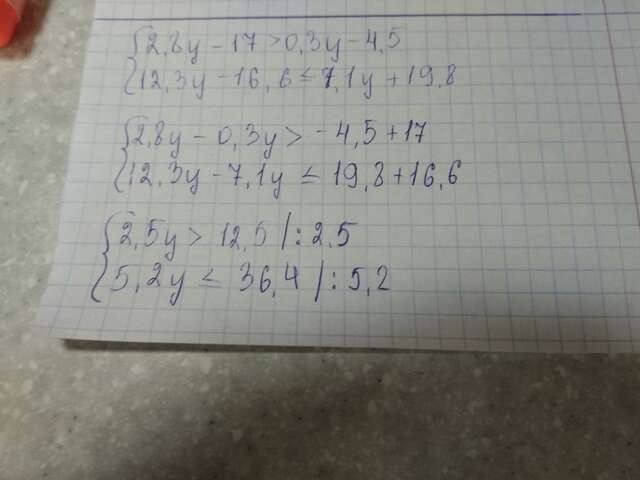 {2,8y - 17 > 0,3y - 4,5
{12,3y - 16,6 ≤ 7,1y + 19,8
{2,8y - 0,3y > -4,5 + 17
{12,3y - 7,1y ≤ 19,8 + 16,6
{2,5y > 12,5 | : 2,5
{5,2y ≤ 36,4 | : 5,2